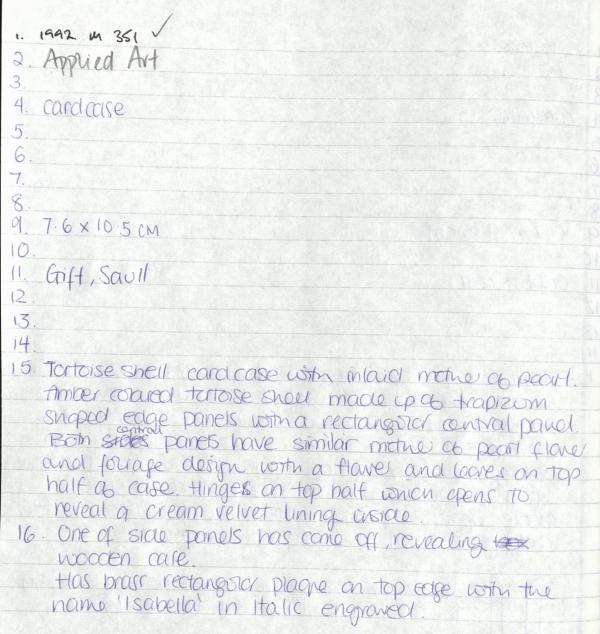 1. 1992 M 351 ✓
2. Applied Art
3.
4. cardcase
5.
6.
7.
8.
9. 7.6 x 10.5 cm
10.
11. Gift, Saull
12.
13.
14.
15. Tortoise shell cardcase with inlaid mother of pearl.
Amber coloured tortoise shell made up of trapizum
shaped edge panels with a rectangular central panel
Both central panels have similar mother of pearl flower
and foliage design with a flower and leaves on top
half of case. Hinges on top half which opens to
reveal a cream velvet lining inside.
16. One of side panels has come off, revealing
wooden case.
Has brass rectangular plaque on top edge with the
name 'Isabella' in Italic engraved.